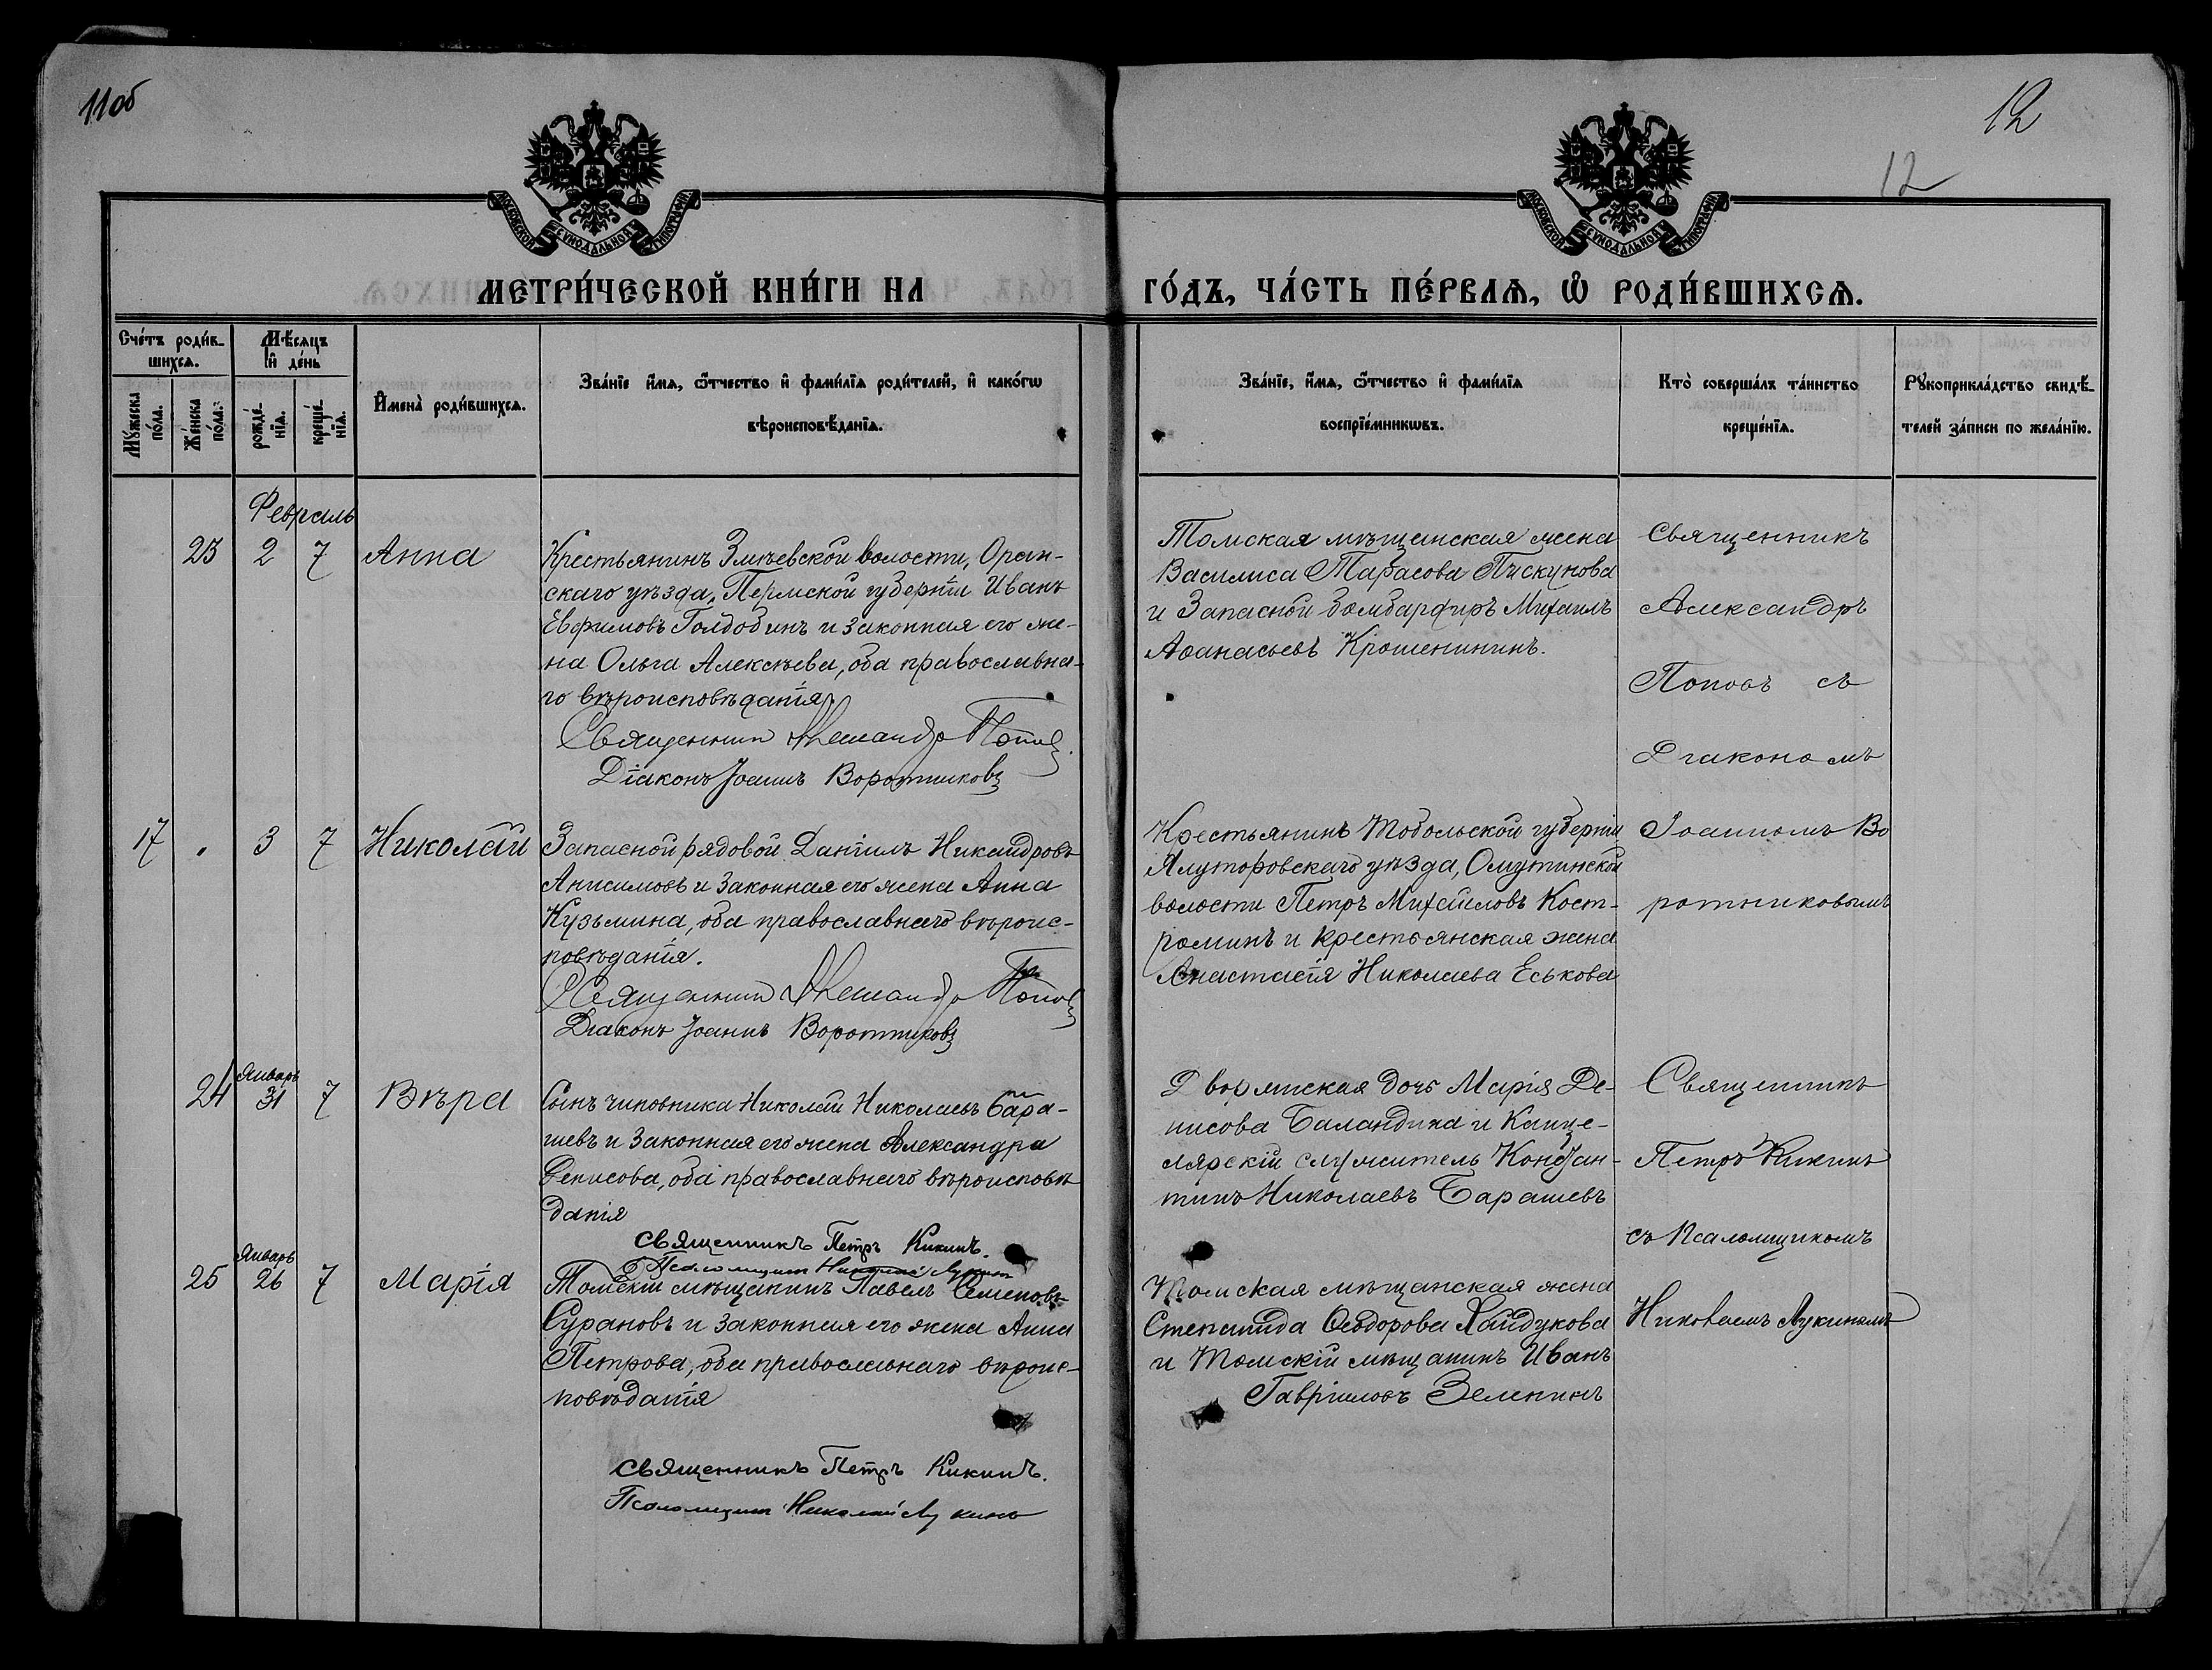 11об
12
12
МОСКОВСКОЙ СѴНОДАЛЬНОЙ ТИПОГРАФІИ
МОСКОВСКОЙ СѴНОДАЛЬНОЙ ТИПОГРАФІИ
МЕТРИ́ЧЕСКОЙ КНИ́ГИ НА
ГО́ДЪ, ЧА́СТЬ ПЕ́РВАѦ, Ѡ҆ РОДИ́ВШИХСѦ.
Сче́тъ роди́в-
шихсѧ.
Мѣ́сѧцъ
и҆ де́нь
Мꙋ́жеска
по́ла.
Же́нска
по́ла.
рожде́-
нїѧ.
креще́-
нїѧ.
И҆мена̀ роди́вшихсѧ.
Зва́нїе и҆́мѧ, ѻ҆́тчество и҆ фами́лїѧ роди́телей, и҆ како́гѡ
вѣроисповѣ́данїѧ.
Зва́нїе, и҆́мѧ, ѻ҆́тчество и҆ фами́лїѧ
воспрїе́мникѡвъ.
Кто̀ соверша́лъ та́инство
креще́нїѧ.
Рꙋкоприкла́дство свидѣ́-
телей за́писи по жела́нїю.
Февраль
23 2 7 Анна
Крестьянинъ Змѣевской волости, Оран-
скаго уѣзда, Пермской губерніи Иванъ
Евфимовъ Голдобинъ и законная его же-
на Ольга Алексѣева, оба православна-
го вѣроисповѣданія.
Священникъ Александръ Поповъ.
Діаконъ Іоаннъ Воротниковъ
Томская мѣщанская жена
Василиса Тарасова Пискунова
и Запасной бомбардиръ Михаилъ
Аѳанасьевъ Крошенининъ.
Священникъ
Александръ
Поповъ съ
Діакономъ
17 3 7 Николай
Запасной рядовой Даніилъ Никандровъ
Анисимовъ и законная его жена Анна
Кузьмина, оба православнаго вѣроис-
повѣданія.
Священникъ Александръ Поповъ
Діаконъ Іоаннъ Воротниковъ
Крестьянинъ Тобольской губерніи
Ялуторовскаго уѣзда, Омутинской
волости Петръ Михайловъ Кост-
роминъ и крестьянская жена
Анастасія Николаева Еськова
Іоанномъ Во
ротниковымъ
Январь
24 31 7 Вѣра
Сынъ чиновника Николай Николаевъ Бара-
шевъ и законная его жена Александра
Денисова, оба православнаго вѣроисповѣ
данія
Священникъ Петръ Кикинъ.
Псаломщикъ Николай Лукинъ
Дворянская дочь Марія Де-
нисова Баландина и Канце-
лярскій служитель Констан-
тинъ Николаевъ Барашевъ
Священникъ
Петръ Кикинъ
съ Псаломщикомъ
Январь
25 26 7 Марія
Томскій мѣщанинъ Павелъ Семеновъ
Сурановъ и законная его жена Анна
Петрова, оба православнаго вѣроис-
повѣданія
Священникъ Петръ Кикинъ.
Псаломщикъ Николай Лукинъ
Томская мѣщанская жена
Степанида Ѳеодорова Хайдукова
и Томскій мѣщанинъ Иванъ
Гавріиловъ Зеленинъ
Николаемъ Лукинымъ